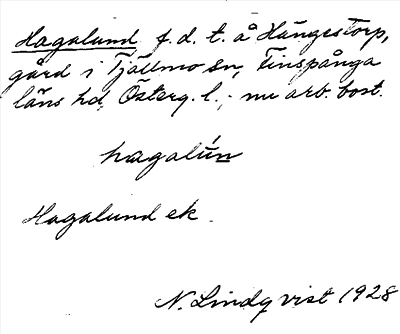 Hagalund f. d. t. å Hängestorp,
gård i Tjällmo sn, Finspånga
läns hd, Österg. l., nu arb. bost.
hagalún
Hagalund ek
N. Lindqvist 1928